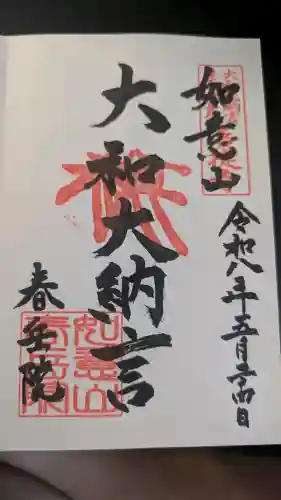 如意山
大和大納言
令和八年五月二十四日
春岳院
如意山
春岳院